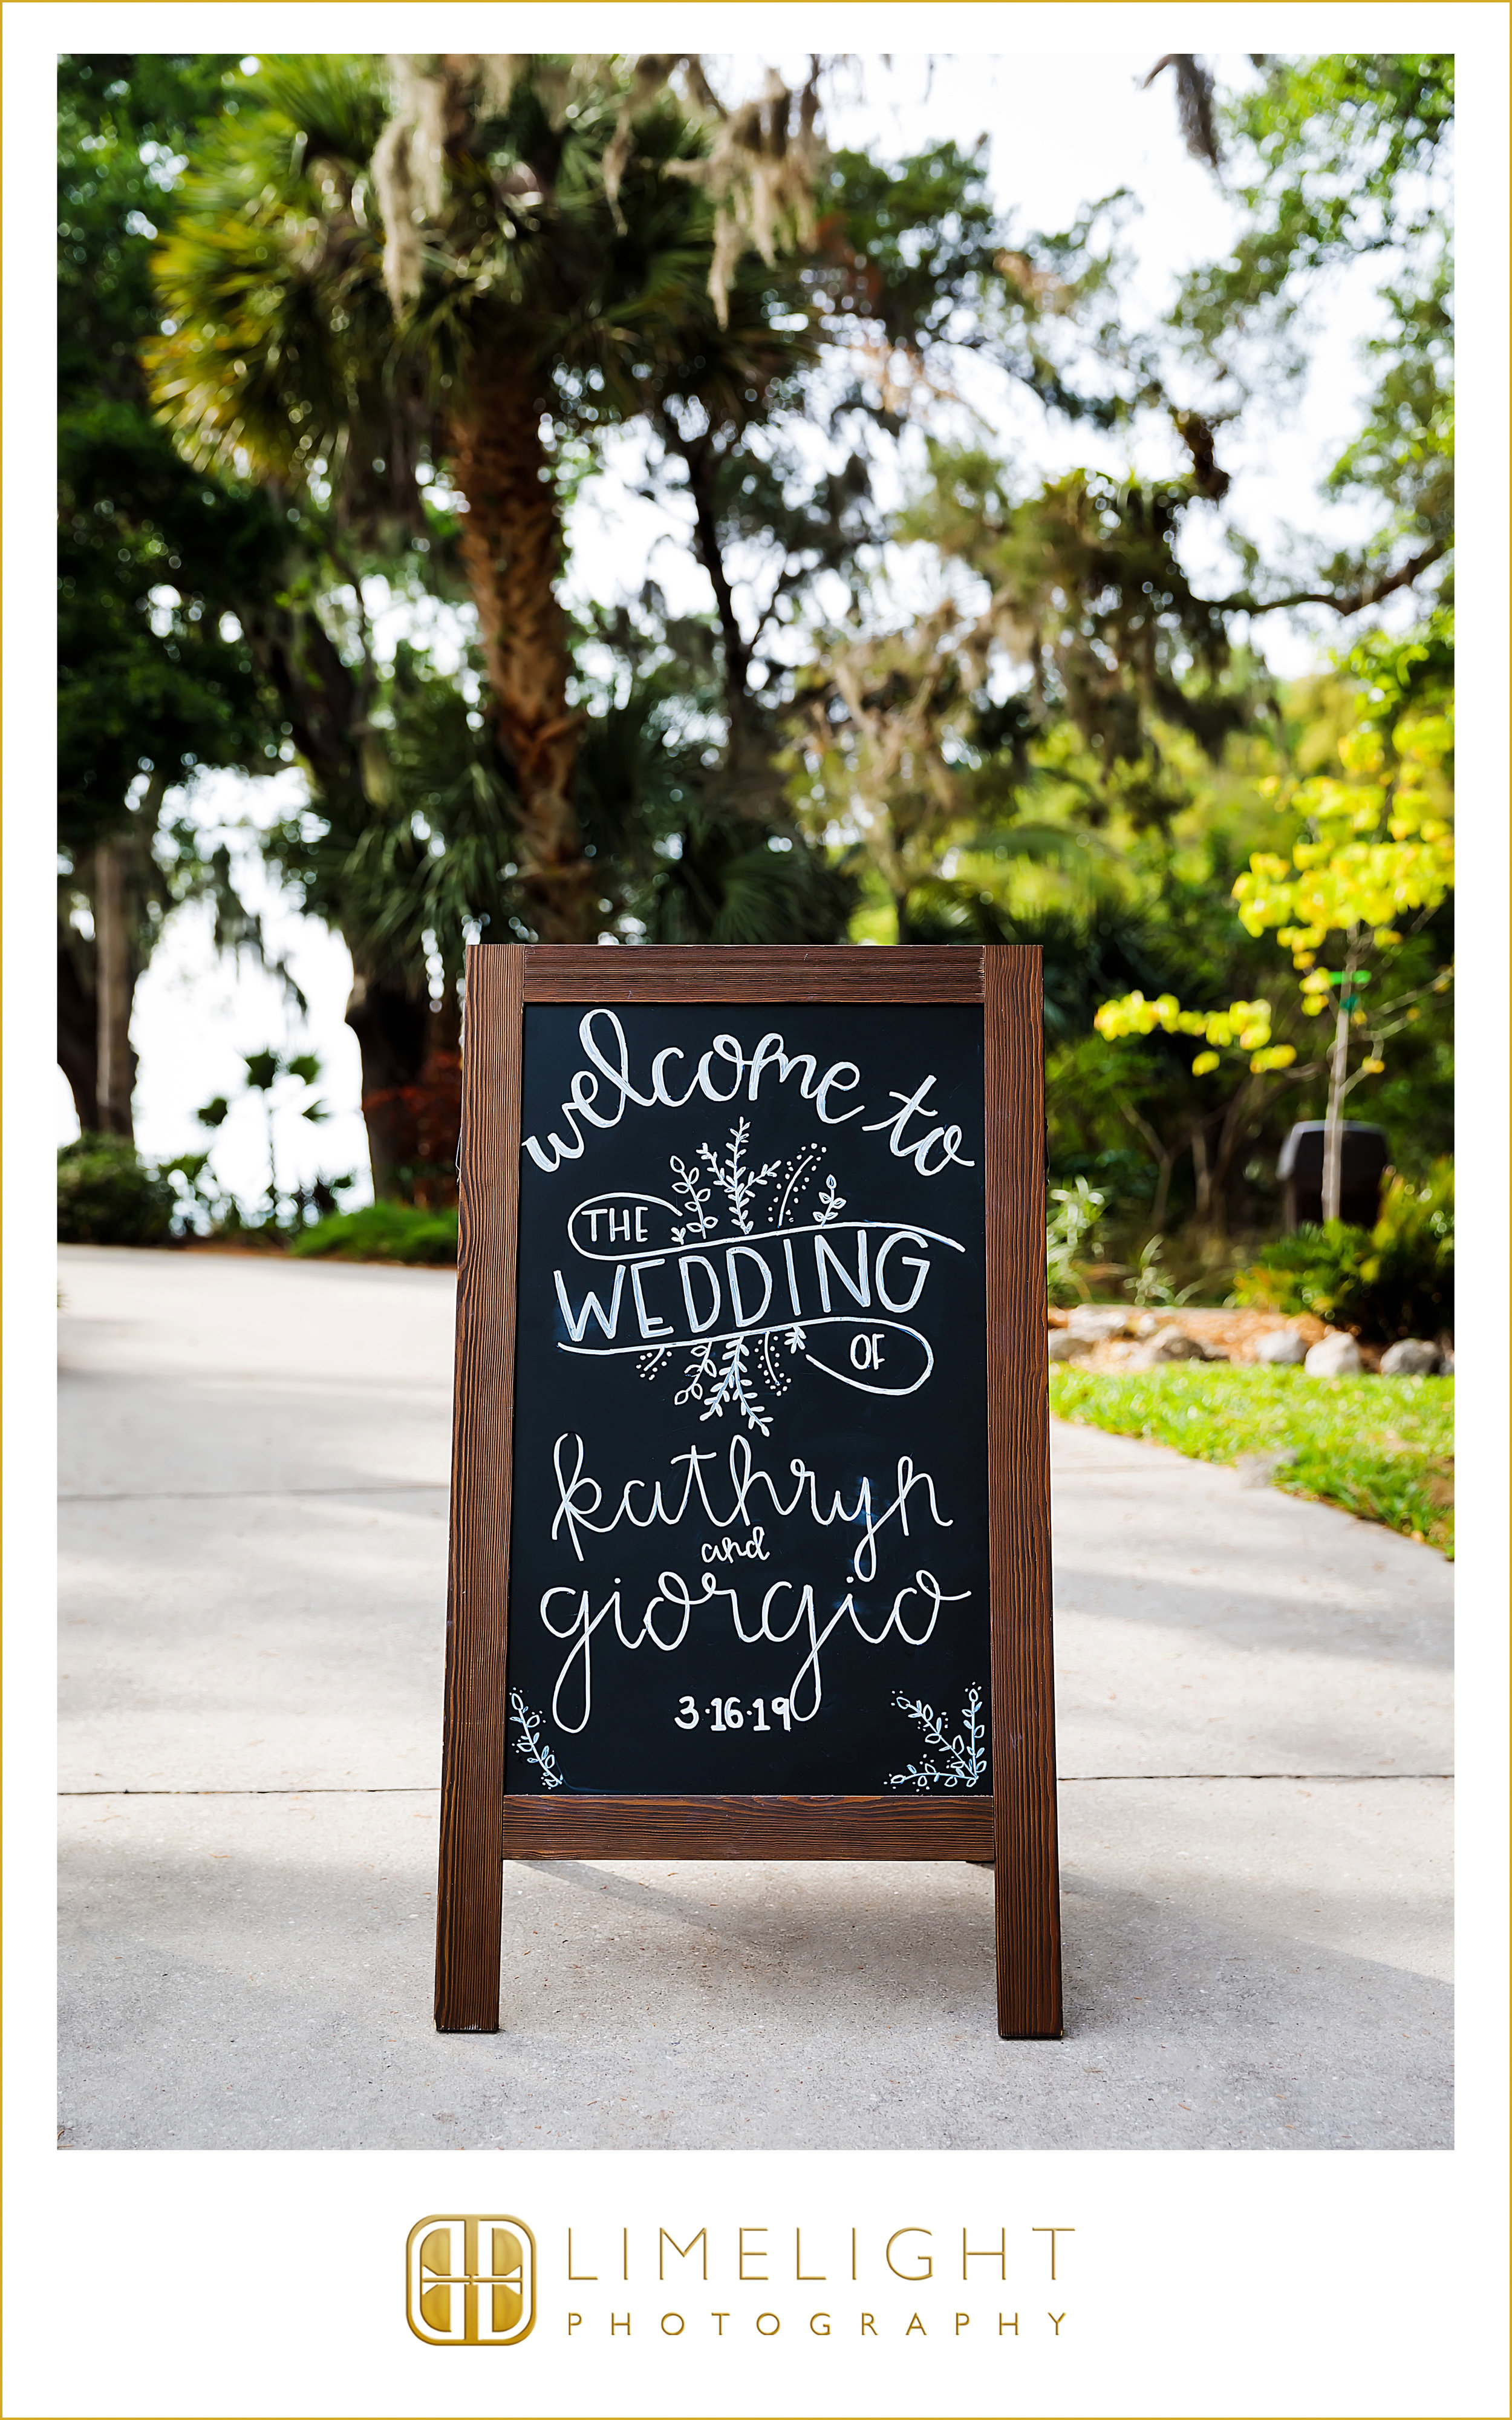 welcome to
THE
WEDDING
OF
kathryn
and
giorgio
3·16·19
LIMELIGHT
PHOTOGRAPHY